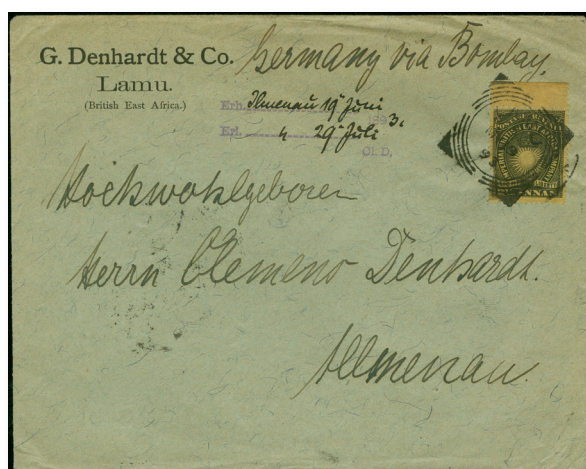 G. Denhardt & Co.
Lamu.
(British East Africa.)
Germany via Bombay.
Erh. Ilmenau 19 Juni
189 3.
Erl. " 29 Juli
Cl. D.
Hochwohlgeboren
Herrn Clemens Denhardt.
Illmenau.